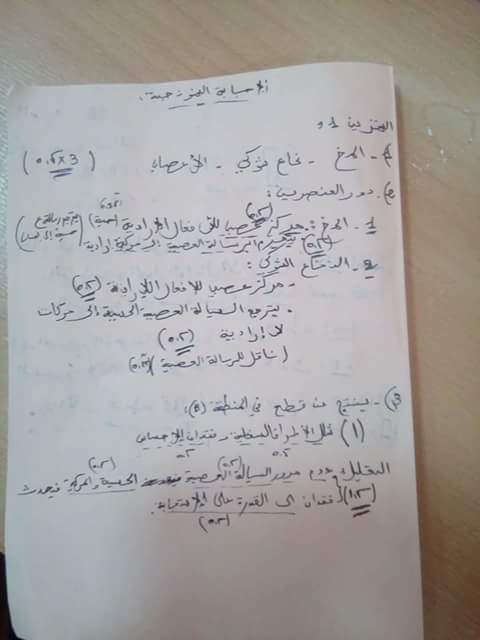 الإجابة النموذجية:
التمرين 1:
1- المخ - نخاع شوكي - الأعصاب (0.5x3)
2) دور العنصرين:
1- المخ: مركز عصبيا للأفعال الإرادية (0.5)
يترجم الرسالة العصبية الحسية إلى حركة إرادية (0.5)
2- النخاع الشوكي:
- مركز عصبيا للأفعال اللاإرادية (0.5)
. يترجم السيالة العصبية الحسية الى حركات
لا إرادية (0.5)
(ناقل للرسالة العصبية)
3)- ينتج من قطع في المنطقة
(1) شلل الأطراف السفلية وفقدان الإحساس
0.5 0.5
التعليل: عدم مرور السيالة العصبية الحسية والحركية فيحدث
فقدان القدرة على الاستجابة.
(0.5)